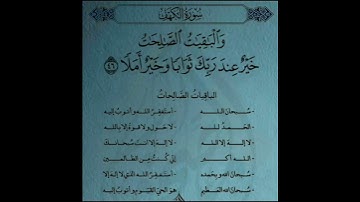 سورة الكهف
وَالْبَٰقِيَٰتُ الصَّٰلِحَٰتُ
خَيْرٌ عِندَ رَبِّكَ ثَوَابًا وَخَيْرٌ أَمَلًا ٤٦
الباقيات الصالحات
- سبحان الله
- أستغفر الله وأتوب إليه
- الحمد لله
- لا حول ولا قوة إلا بالله
- لا إله إلا الله
- لا إله إلا أنت سبحانك
- الله أكبر
إني كنت من الظالمين
- سبحان الله وبحمده
- أستغفر الله الذي لا إله إلا
- سبحان الله العظيم
هو الحي القيوم وأتوب إليه